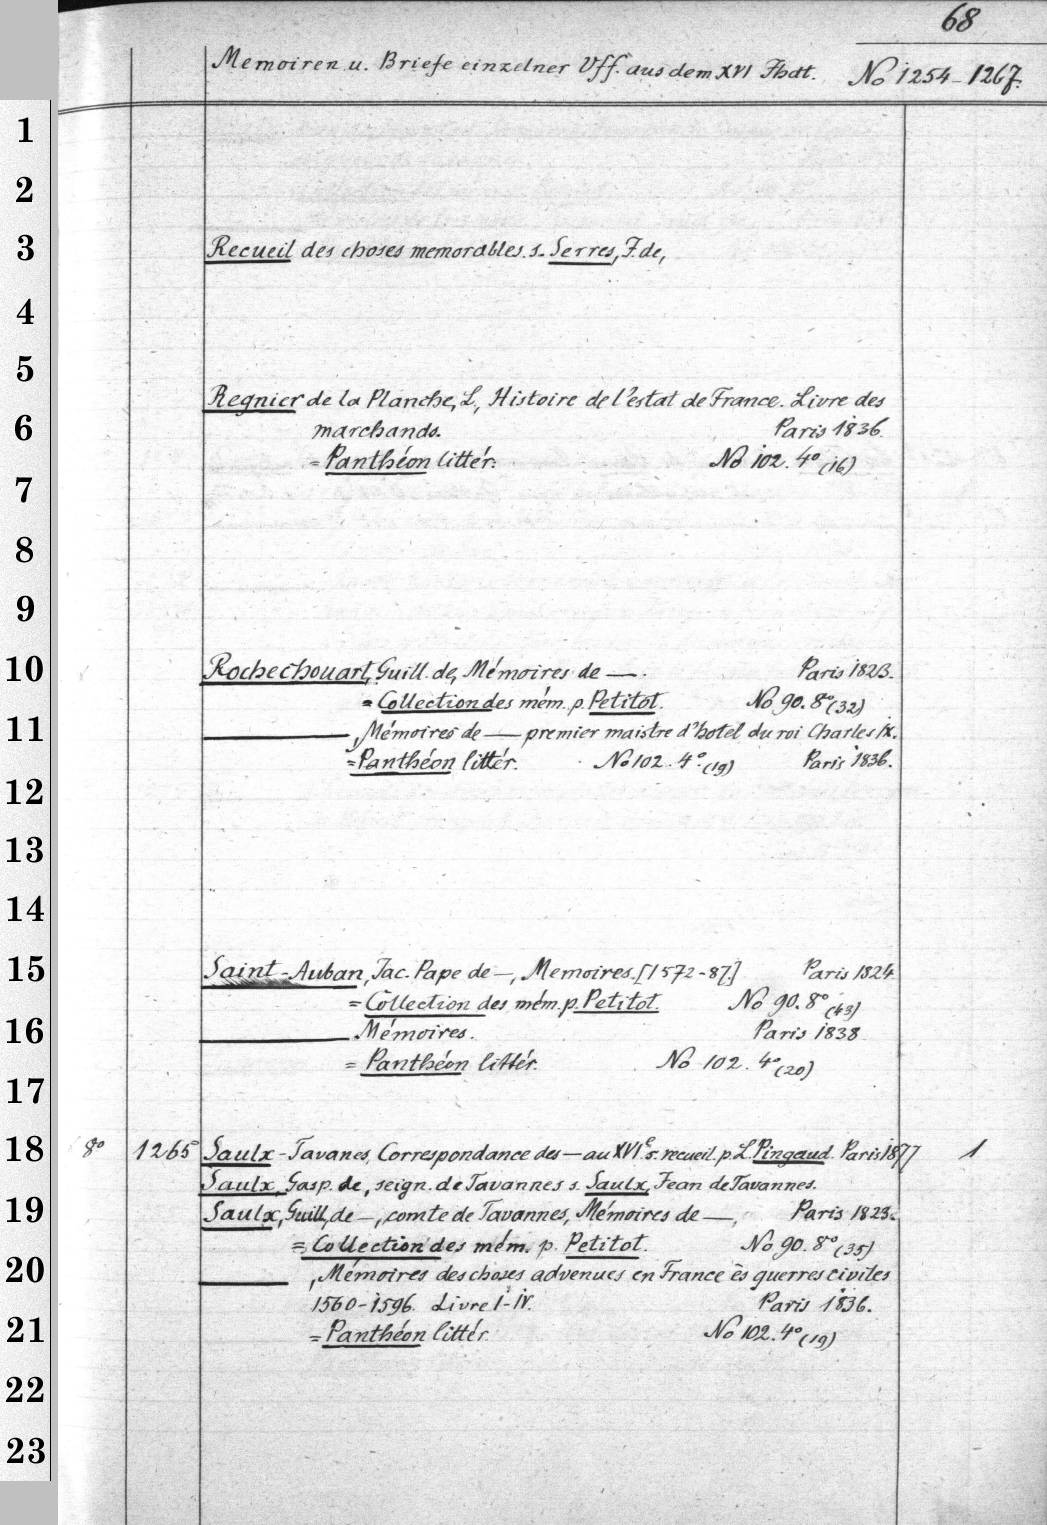 68
Memoiren u. Briefe einzelner Vff. aus dem XVI Jhdt. No 1254-1267.
1
2
3 Recueil des choses memorables. s. Serres, J. de,
4
5
Regnier de la Planche, L., Histoire de l'estat de France. Livre des
6 marchands. Paris 1836.
= Panthéon littér. No 102. 4° (16)
7
8
9
10 Rochechouart, Guill. de, Mémoires de —. Paris 1823.
= Collection des mém. p. Petitot. No 90. 8° (32)
11 ———, Mémoires de — premier maistre d'hotel du roi Charles IX.
= Panthéon littér. No 102. 4°. (19) Paris 1836.
12
13
14
15 Saint-Auban, Jac. Pape de —, Memoires. [1572-87.] Paris 1824
= Collection des mém. p. Petitot. No 90. 8° (43)
16 ——— Mémoires. Paris 1838
= Panthéon littér. No 102. 4° (20)
17
18 8° 1265 Saulx-Tavanes, Correspondance des — au XVIe s. recueil. p. L. Pingaud. Paris 1877 1
Saulx, Gasp. de, seign. de Tavannes s. Saulx, Jean de Tavannes.
19 Saulx, Guill. de —, comte de Tavannes, Mémoires de —, Paris 1823.
= Collection des mém. p. Petitot. No 90. 8° (35)
20 ———, Mémoires des choses advenues en France ès guerres civiles
1560-1596. Livre I-IV. Paris 1836.
21 = Panthéon littér. No 102. 4° (19)
22
23